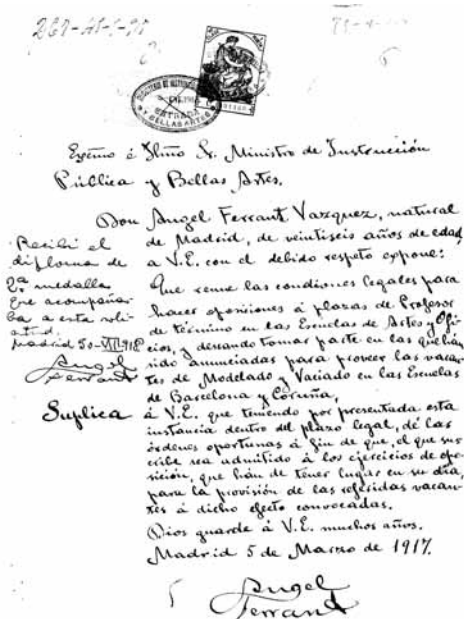 Exemo é Ilmo Sr. Ministro de Instrucción
Pública y Bellas Artes.
Don Angel Ferrant Vazquez, natural
de Madrid, de veintiseis años de edad,
a V.E. con el debido respeto expone:
Que reune las condiciones legales para
hacer oposiciones á plazas de Profesor
de término en las Escuelas de Artes y Ofi-
cios, y deseando tomar parte en las que han
sido anunciadas para proveer las vacan-
tes de Modelado y Vaciado en las Escuelas
de Barcelona y Coruña,
Suplica á V.E. que teniendo por presentada esta
instancia dentro del plazo legal, dé las
órdenes oportunas á fin de que, el que sus-
cribe sea admitido á los ejercicios de opo-
sición, que han de tener lugar en su dia,
para la provisión de las referidas vacan-
tes á dicho efecto convocadas.
Dios guarde á V.E. muchos años.
Madrid 5 de Marzo de 1917.
Angel
Ferrant
Recibí el
diploma de
2ª medalla
que acompaña-
ba a esta soli-
citud.
Madrid 30-VII-1918
Angel
Ferrant
ENTRADA
Y BELLAS ARTES